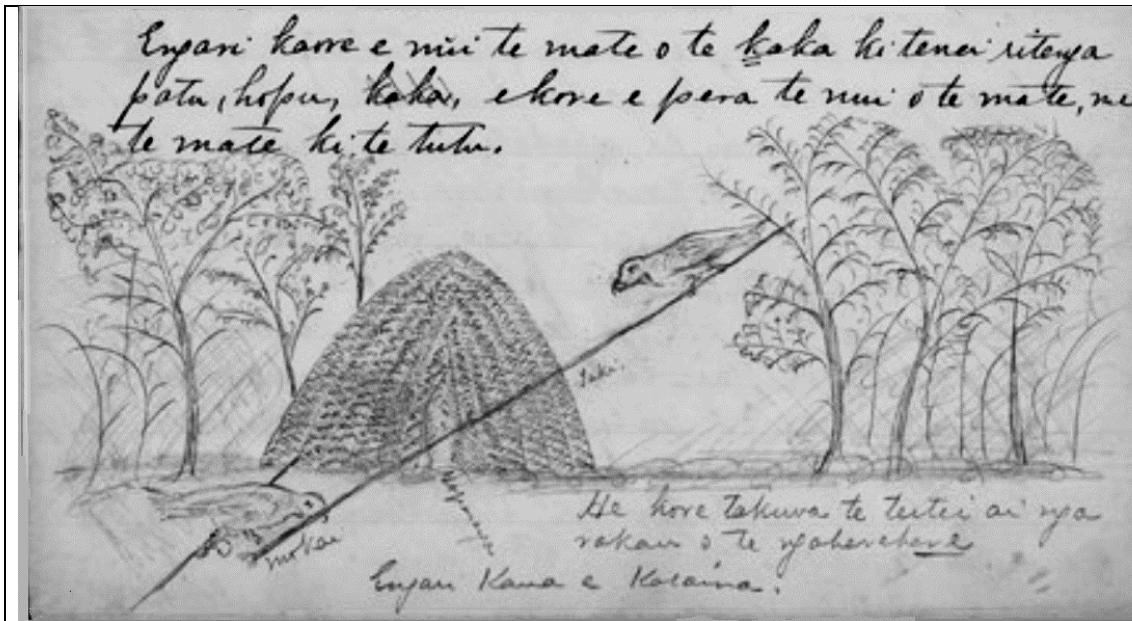 Engari kaore e nui te mate o te kaka ki tenei ritenga
patu, hopu, kaka, ekore e pera te nui o te mate, me
te mate ki te tutu.
mokai
He kore takuva te tutei ai nga
rakau o te ngaherehere
Engari Kaua e